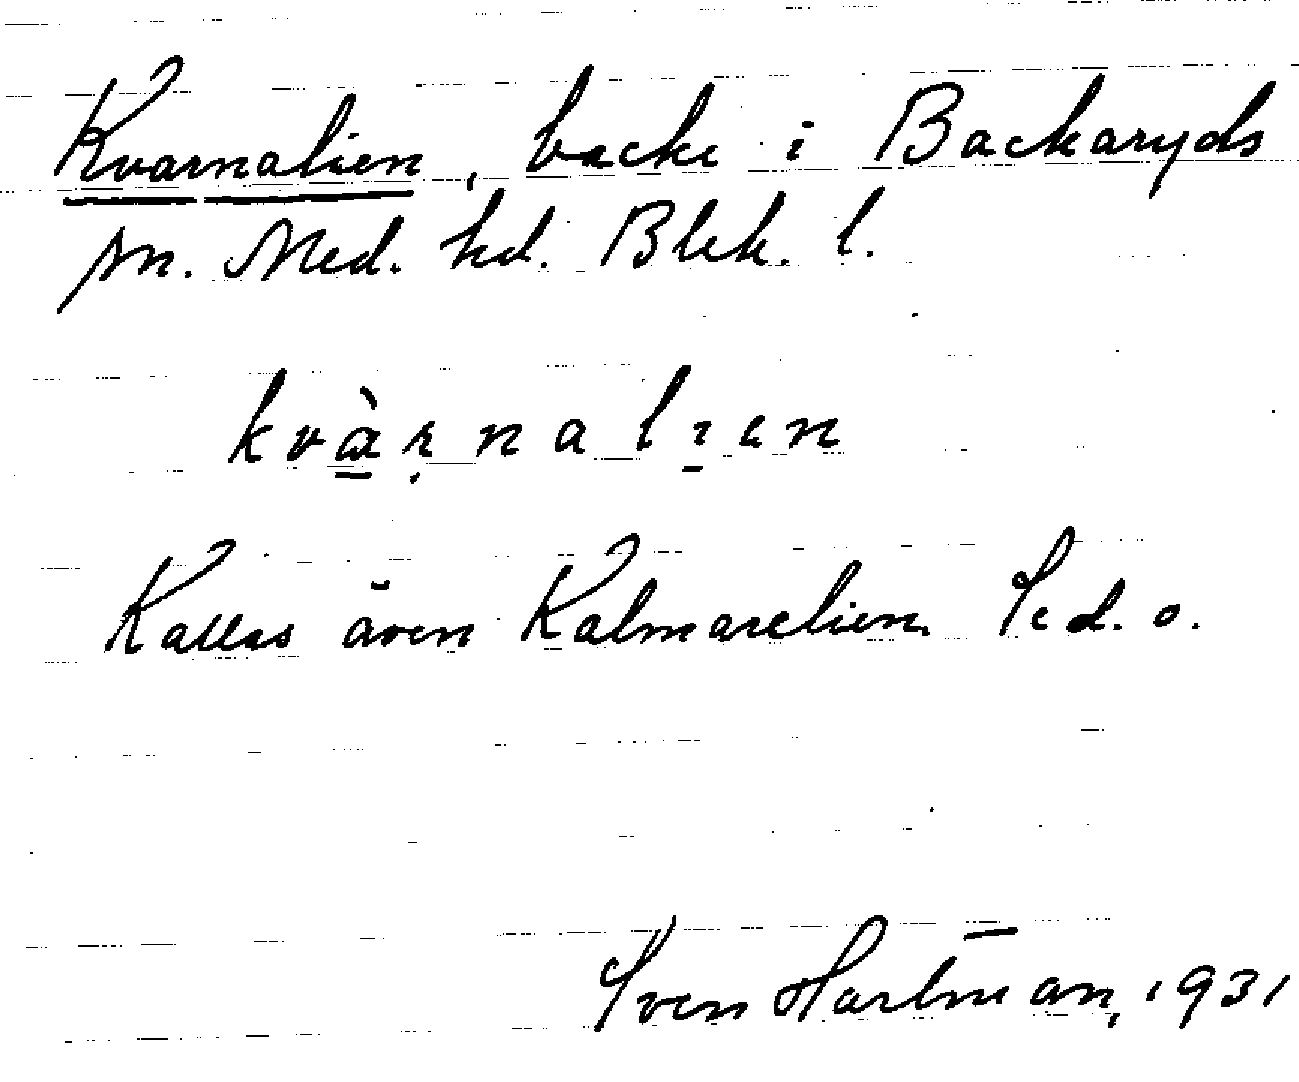 Kvarnalien, backe i Backaryds
sn. Med. hd. Blek. l.
kvàrnalien
Kallas även Kalmarelien. Se d. o.
Sven Hartman, 1931